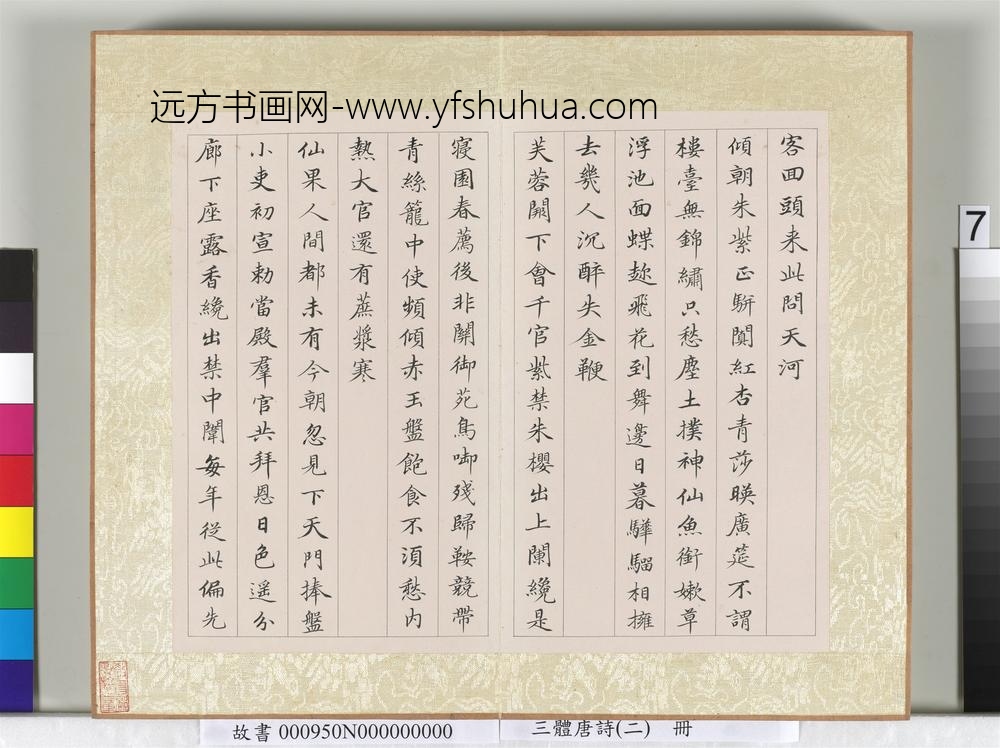 远方书画网-www.yfshuhua.com
客回頭来此問天河
傾朝朱紫正駢闐紅杏青莎暎廣筵不謂
樓臺無錦繡只愁塵土撲神仙魚銜嫰草
浮池面蝶趂飛花到舞邊日暮驊騮相擁
去幾人沉醉失金鞭
芙蓉闕下會千官紫禁朱櫻出上闌纔是
寝園春薦後非關御苑鳥啣殘歸鞍競帶
青絲籠中使頻傾赤玉盤飽食不湏愁内
熱大官還有蔗漿寒
仙果人間都未有今朝忽見下天門捧盤
小吏初宣勅當殿羣官共拜恩日色遥分
廊下座露香纔出禁中闈每年從此偏先
7
故書 000950N000000000
三體唐詩(二) 冊